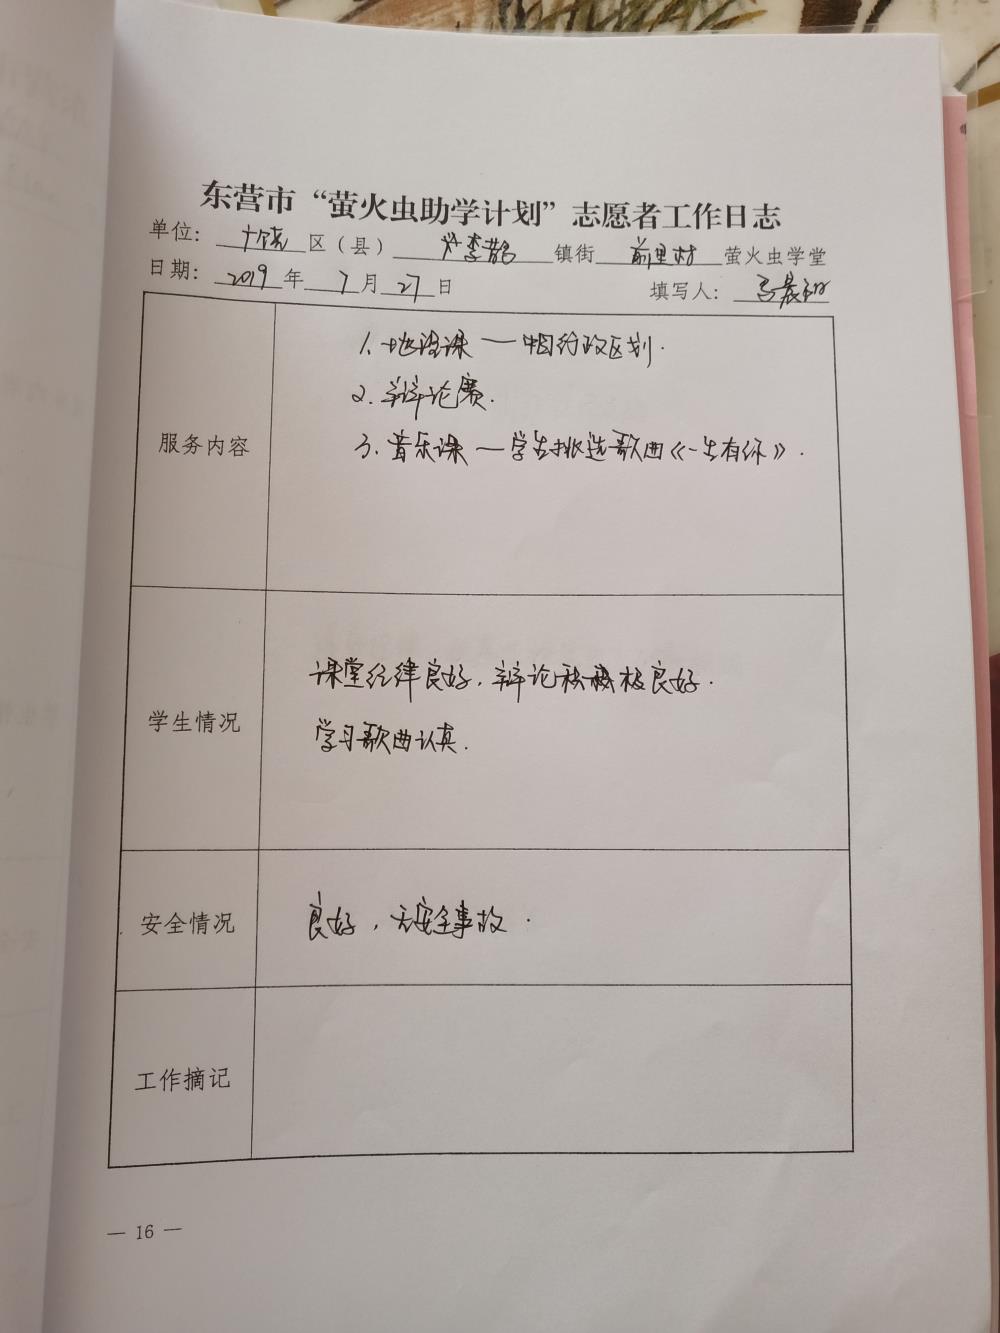 东营市“萤火虫助学计划”志愿者工作日志
单位：广饶区（县）大李鹊镇街前里村萤火虫学堂
日期：2019年7月27日 填写人：
服务内容
1、地理课—中国行政区划.
2、辩论赛.
3、音乐课—学生挑选歌曲《一生有你》.
学生情况
课堂纪律良好，辩论积极良好.
学习歌曲认真.
安全情况
良好，无安全事故.
工作摘记
— 16 —